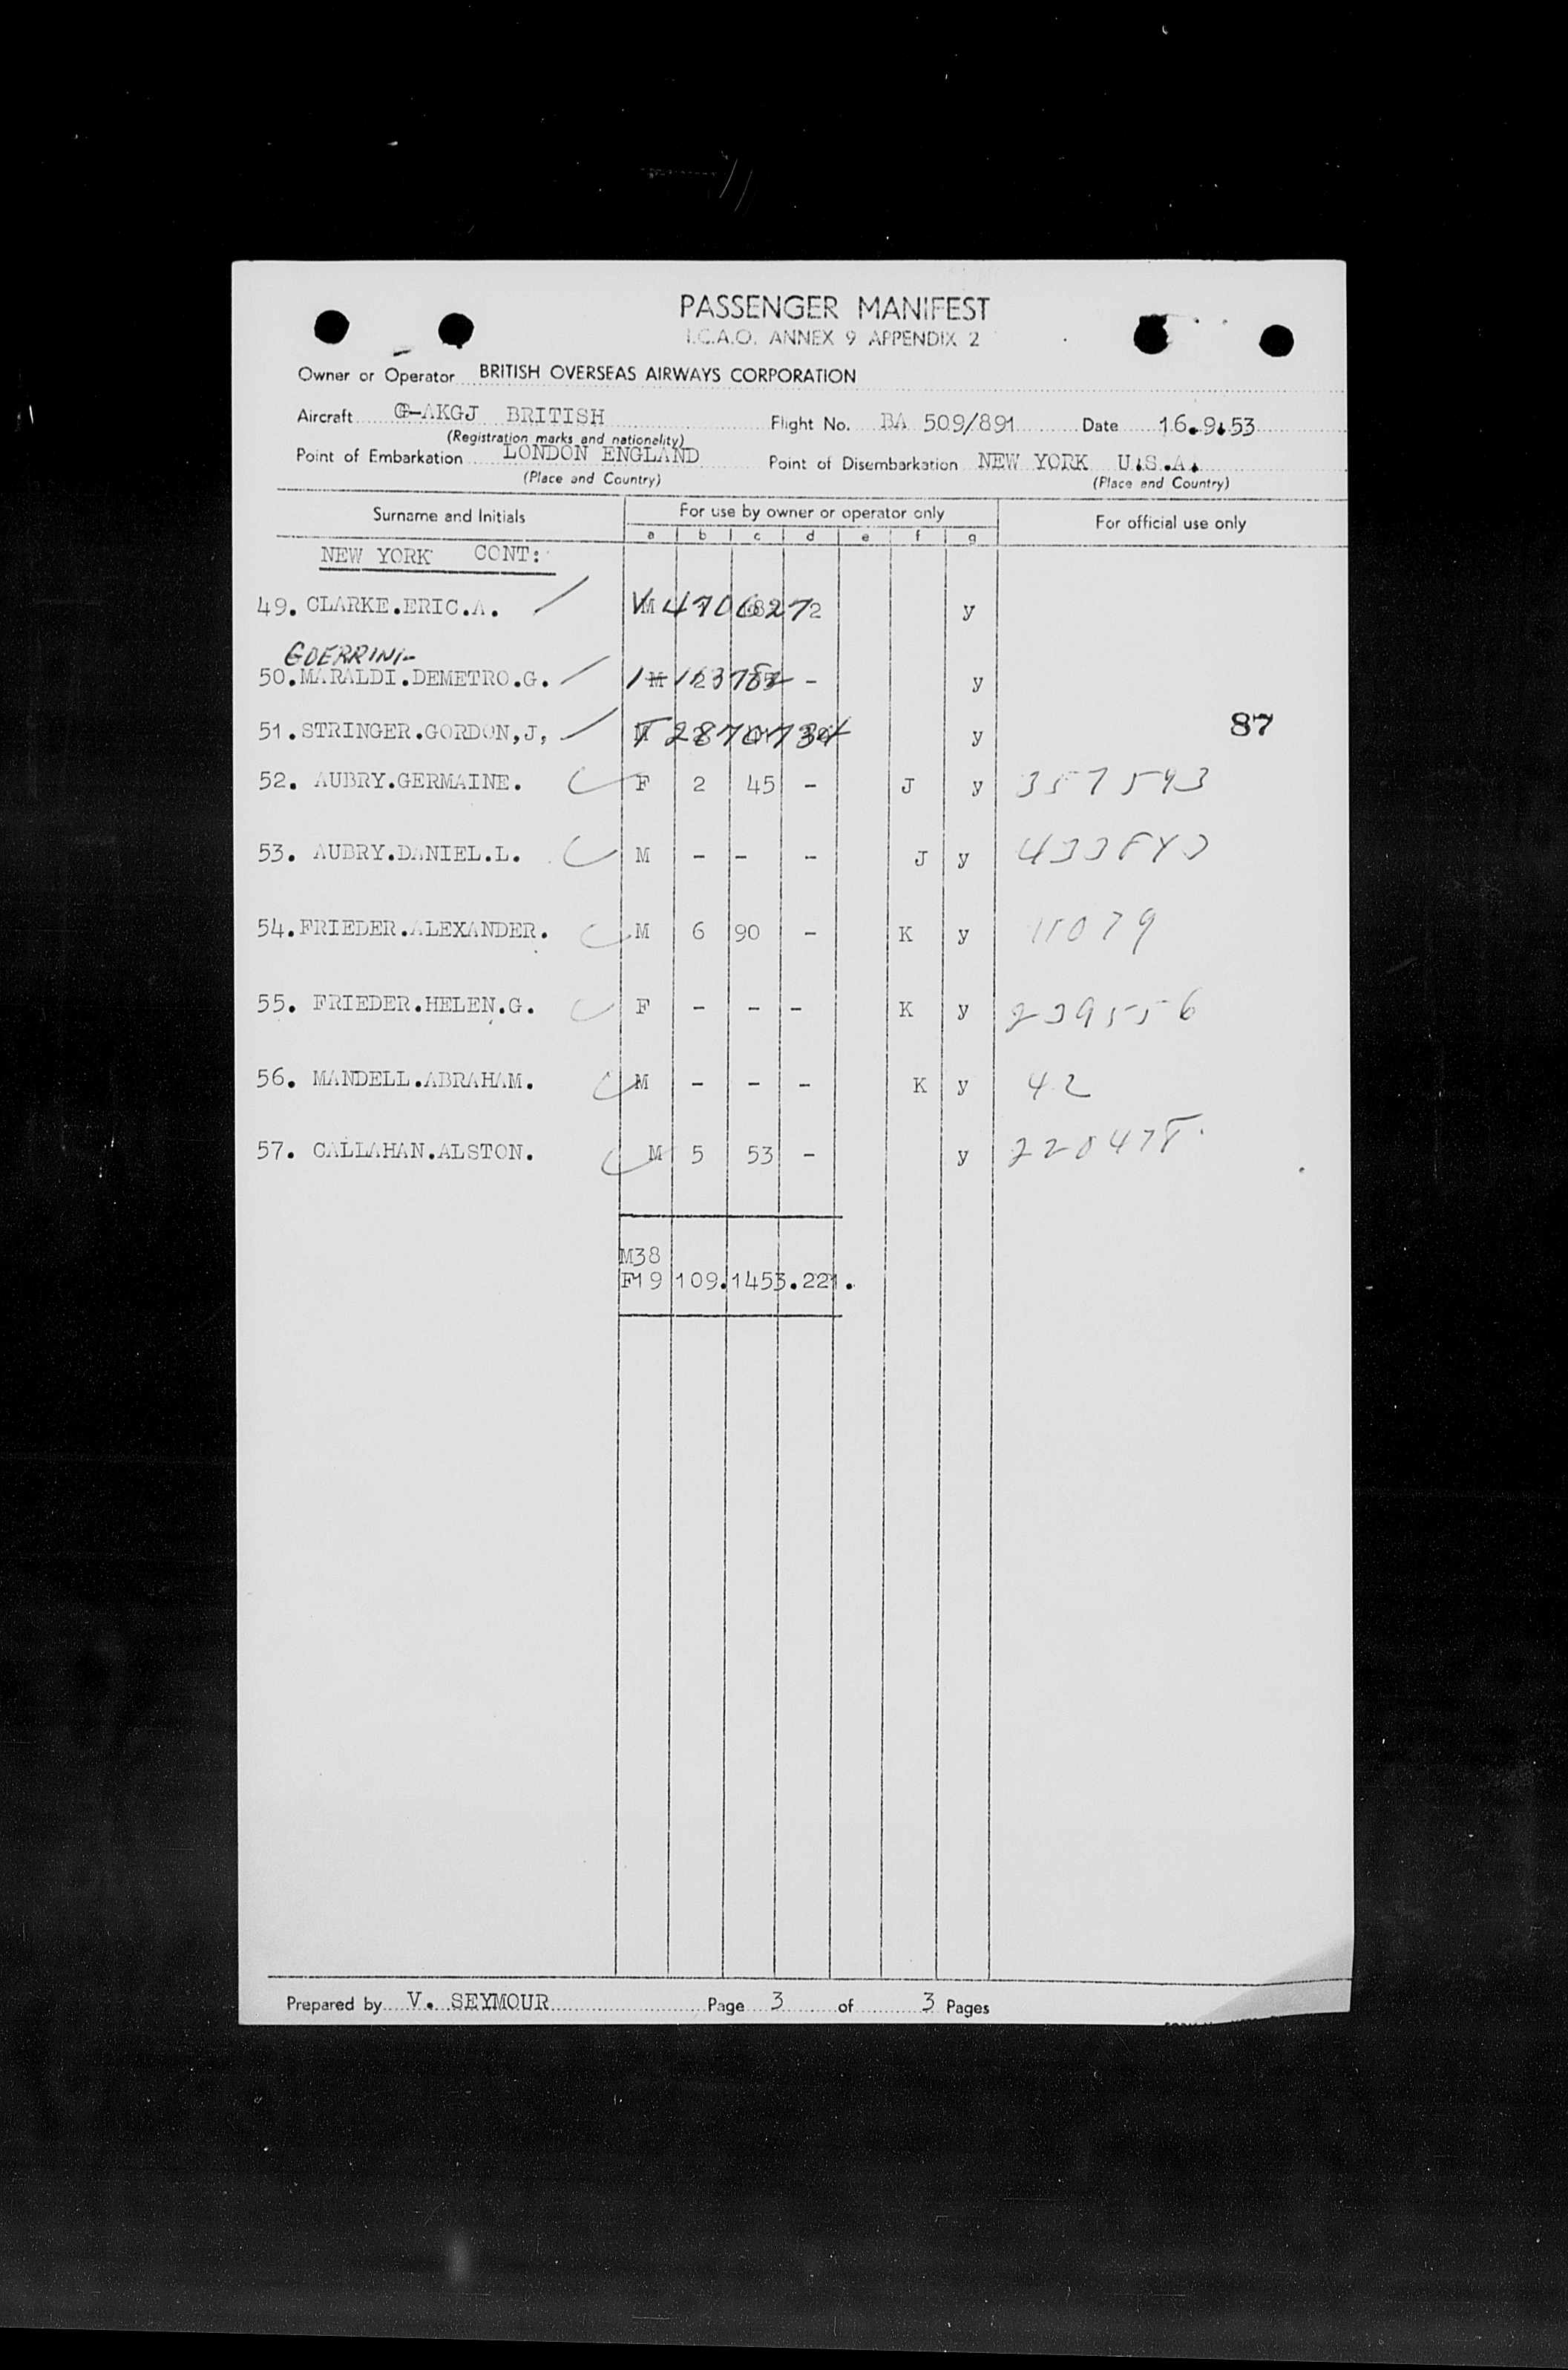 PASSENGER MANIFEST
I.C.A.O. ANNEX 9 APPENDIX 2
Owner or Operator BRITISH OVERSEAS AIRWAYS CORPORATION
Aircraft G-AKGJ BRITISH Flight No. BA 509/891 Date 16.9.53
(Registration marks and nationality)
Point of Embarkation LONDON ENGLAND Point of Disembarkation NEW YORK U.S.A.
(Place and Country) (Place and Country)
Surname and Initials For use by owner or operator only For official use only
a b c d e f g
NEW YORK CONT:
49. CLARKE.ERIC.A. V4706272 y
GUERRINI-
50.MARALDI.DEMETRO.G. - y
51.STRINGER.GORDON,J, y 87
52. AUBRY.GERMAINE. F 2 45 - J y 357593
53. AUBRY.DANIEL.L. M - - - J y 433843
54.FRIEDER.ALEXANDER. M 6 90 - K y 11079
55. FRIEDER.HELEN.G. F - - - K y 239556
56. MANDELL.ABRAHAM. M - - - K y 42
57. CALLAHAN.ALSTON. M 5 53 - y 220478
M38
F19 109.1453.221.
Prepared by V. SEYMOUR Page 3 of 3 Pages